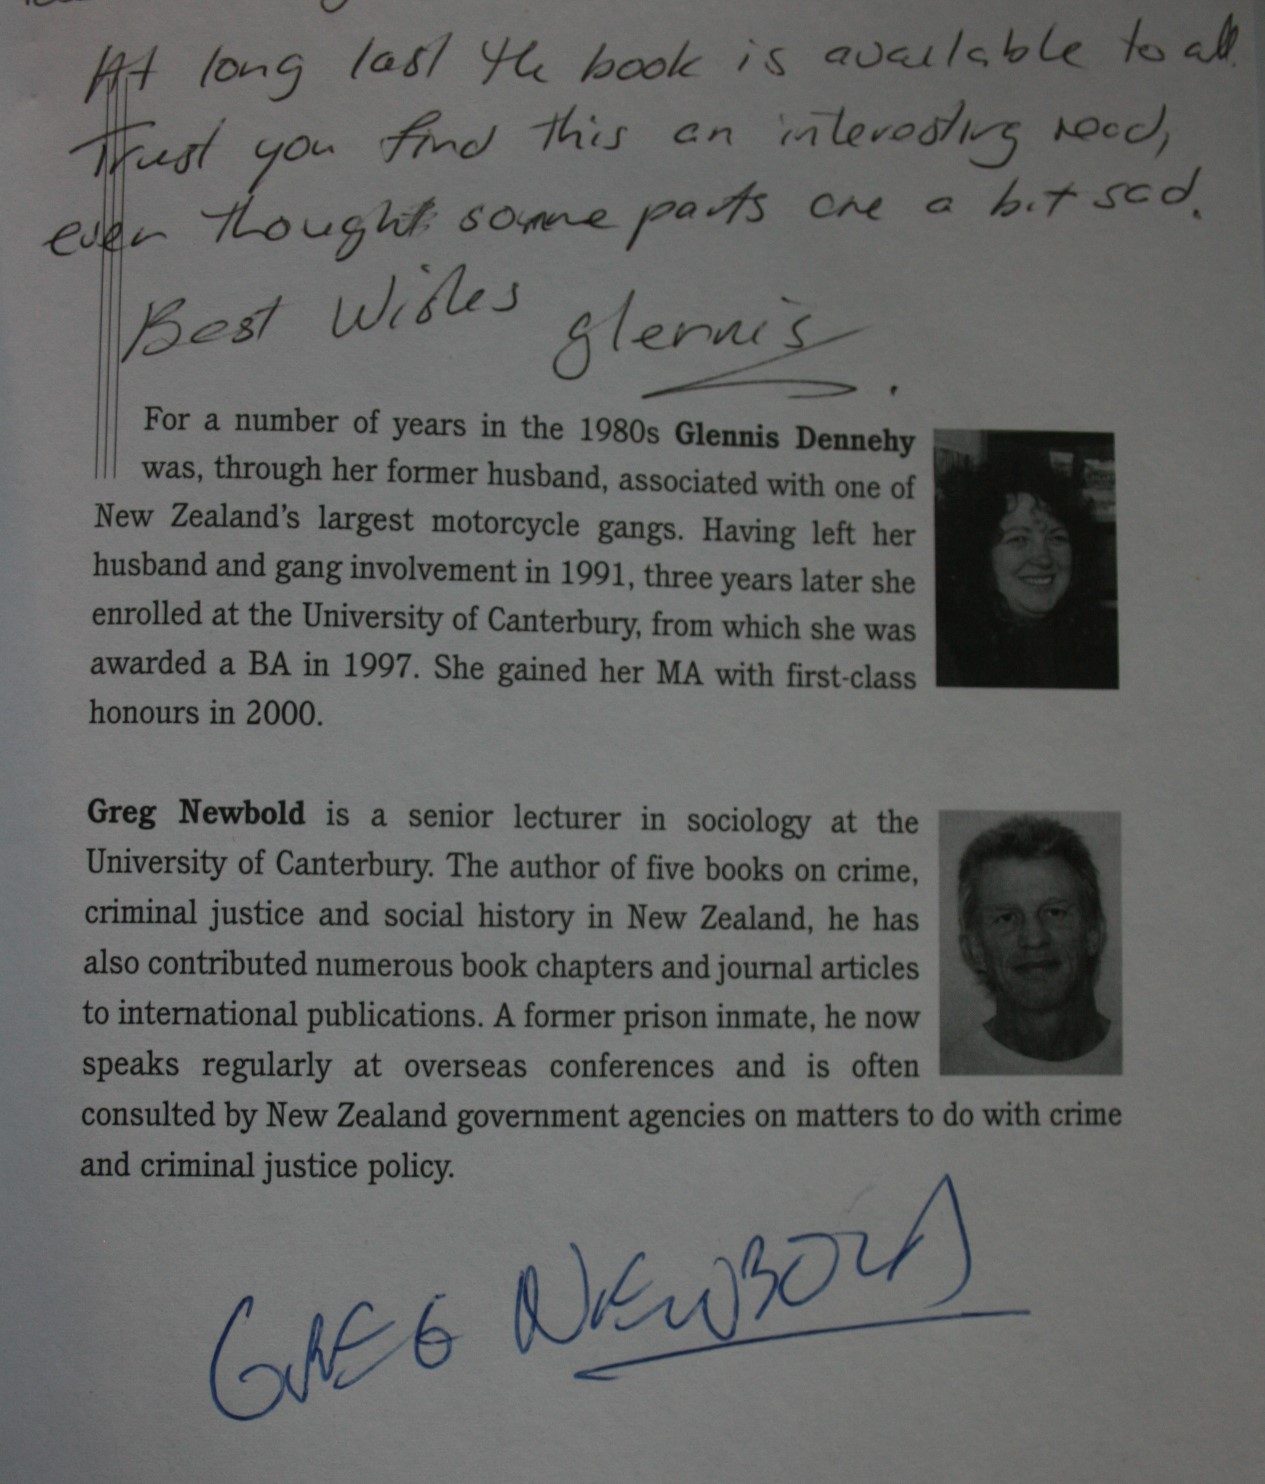 At long last the book is available to all.
Trust you find this an interesting read,
even thought some parts are a bit sad.
Best Wishes Glennis
For a number of years in the 1980s Glennis Dennehy
was, through her former husband, associated with one of
New Zealand's largest motorcycle gangs. Having left her
husband and gang involvement in 1991, three years later she
enrolled at the University of Canterbury, from which she was
awarded a BA in 1997. She gained her MA with first-class
honours in 2000.
Greg Newbold is a senior lecturer in sociology at the
University of Canterbury. The author of five books on crime,
criminal justice and social history in New Zealand, he has
also contributed numerous book chapters and journal articles
to international publications. A former prison inmate, he now
speaks regularly at overseas conferences and is often
consulted by New Zealand government agencies on matters to do with crime
and criminal justice policy.
GREG NEWBOLD